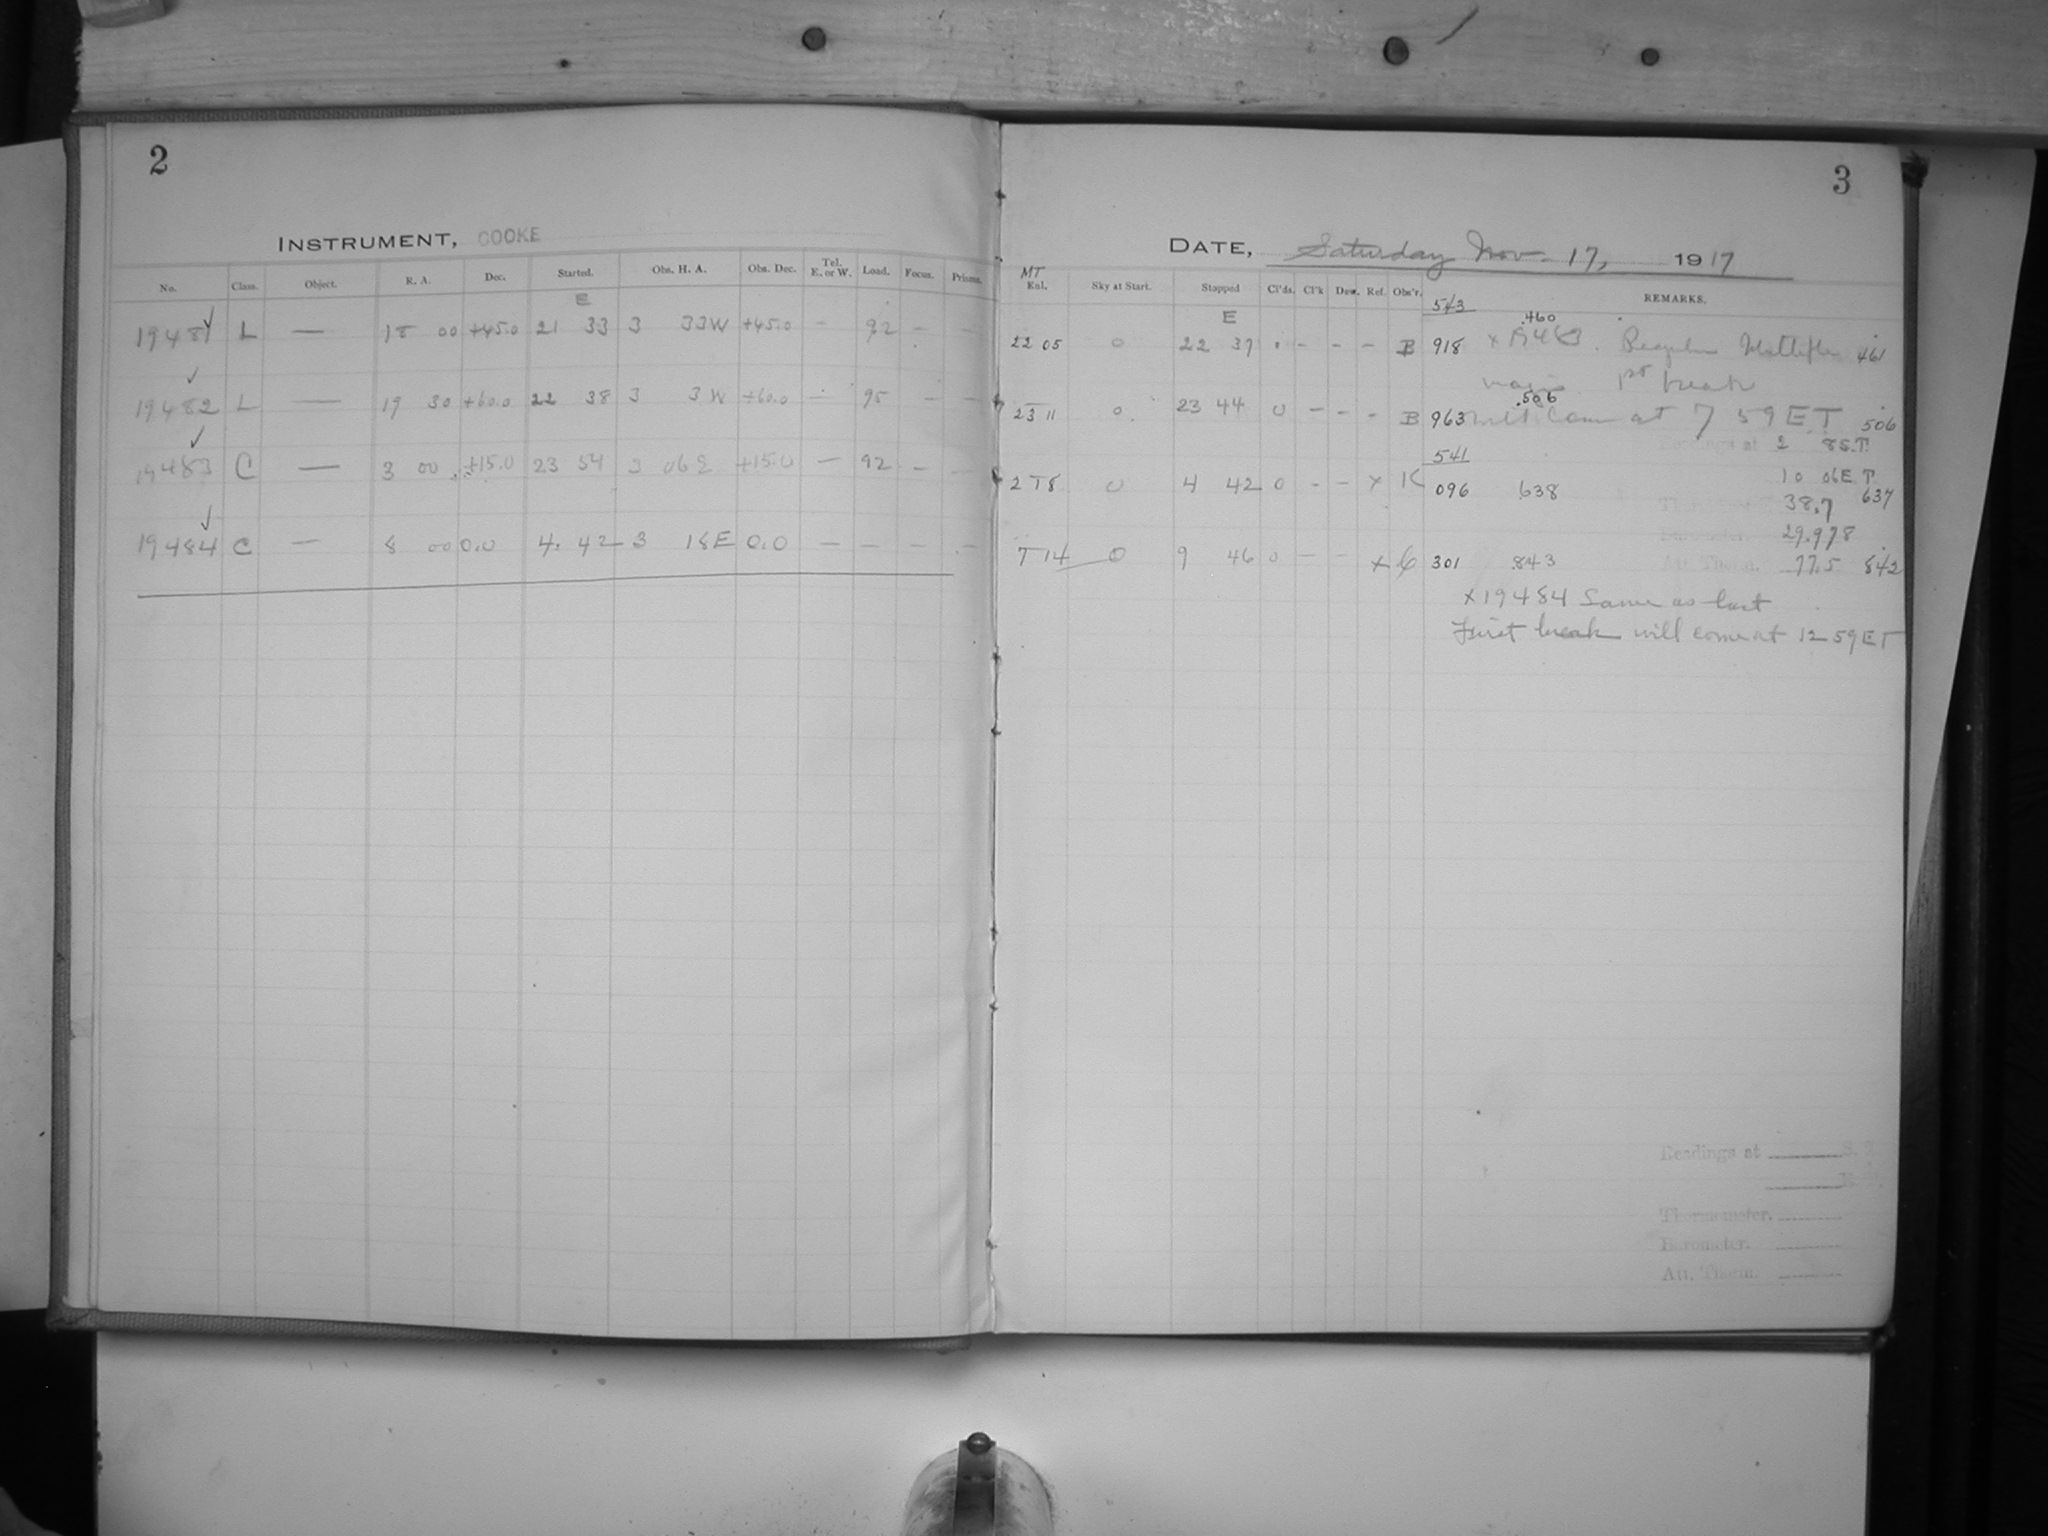 2
INSTRUMENT, COOKE
No. Class. Object. R. A. Dec. Started. Obs. H. A. Obs. Dec. Tel. E. or W. Load. Focus. Prisms.
E
19481 L — 18 00 +45.0 21 33 3 33W +45.0 — 92 — —
19482 L — 19 30 +60.0 22 38 3 3W +60.0 — 95 — —
19483 C — 3 00 +15.0 23 54 3 06E +15.0 — 92 — —
19484 C — 8 00 0.0 4 42 3 18E 0.0 — — — —
3
DATE, Saturday Nov. 17, 1917
MT
Eal. Sky at Start. Stopped Cl'ds. Cl'k Dew. Ref. Obs'r. REMARKS.
543
E .460
22 05 0 22 37 - - - B 918 x 19483. Regular 461
1st break
.506
23 11 0 23 44 0 - - - B 963 will come at 7 59 ET 506
Readings at 2 8 S.T.
541
10 06 E.T.
2T8 0 4 42 0 - - x K 096 .638 38.7 637
Barometer. 29.978
7T14 0 9 46 0 - - x 301 .843 Att. Therm. 77.5 842
x19484 Same as last
First break will come at 12 59 ET
Readings at S.T.
Thermometer.
Barometer.
Att. Therm.